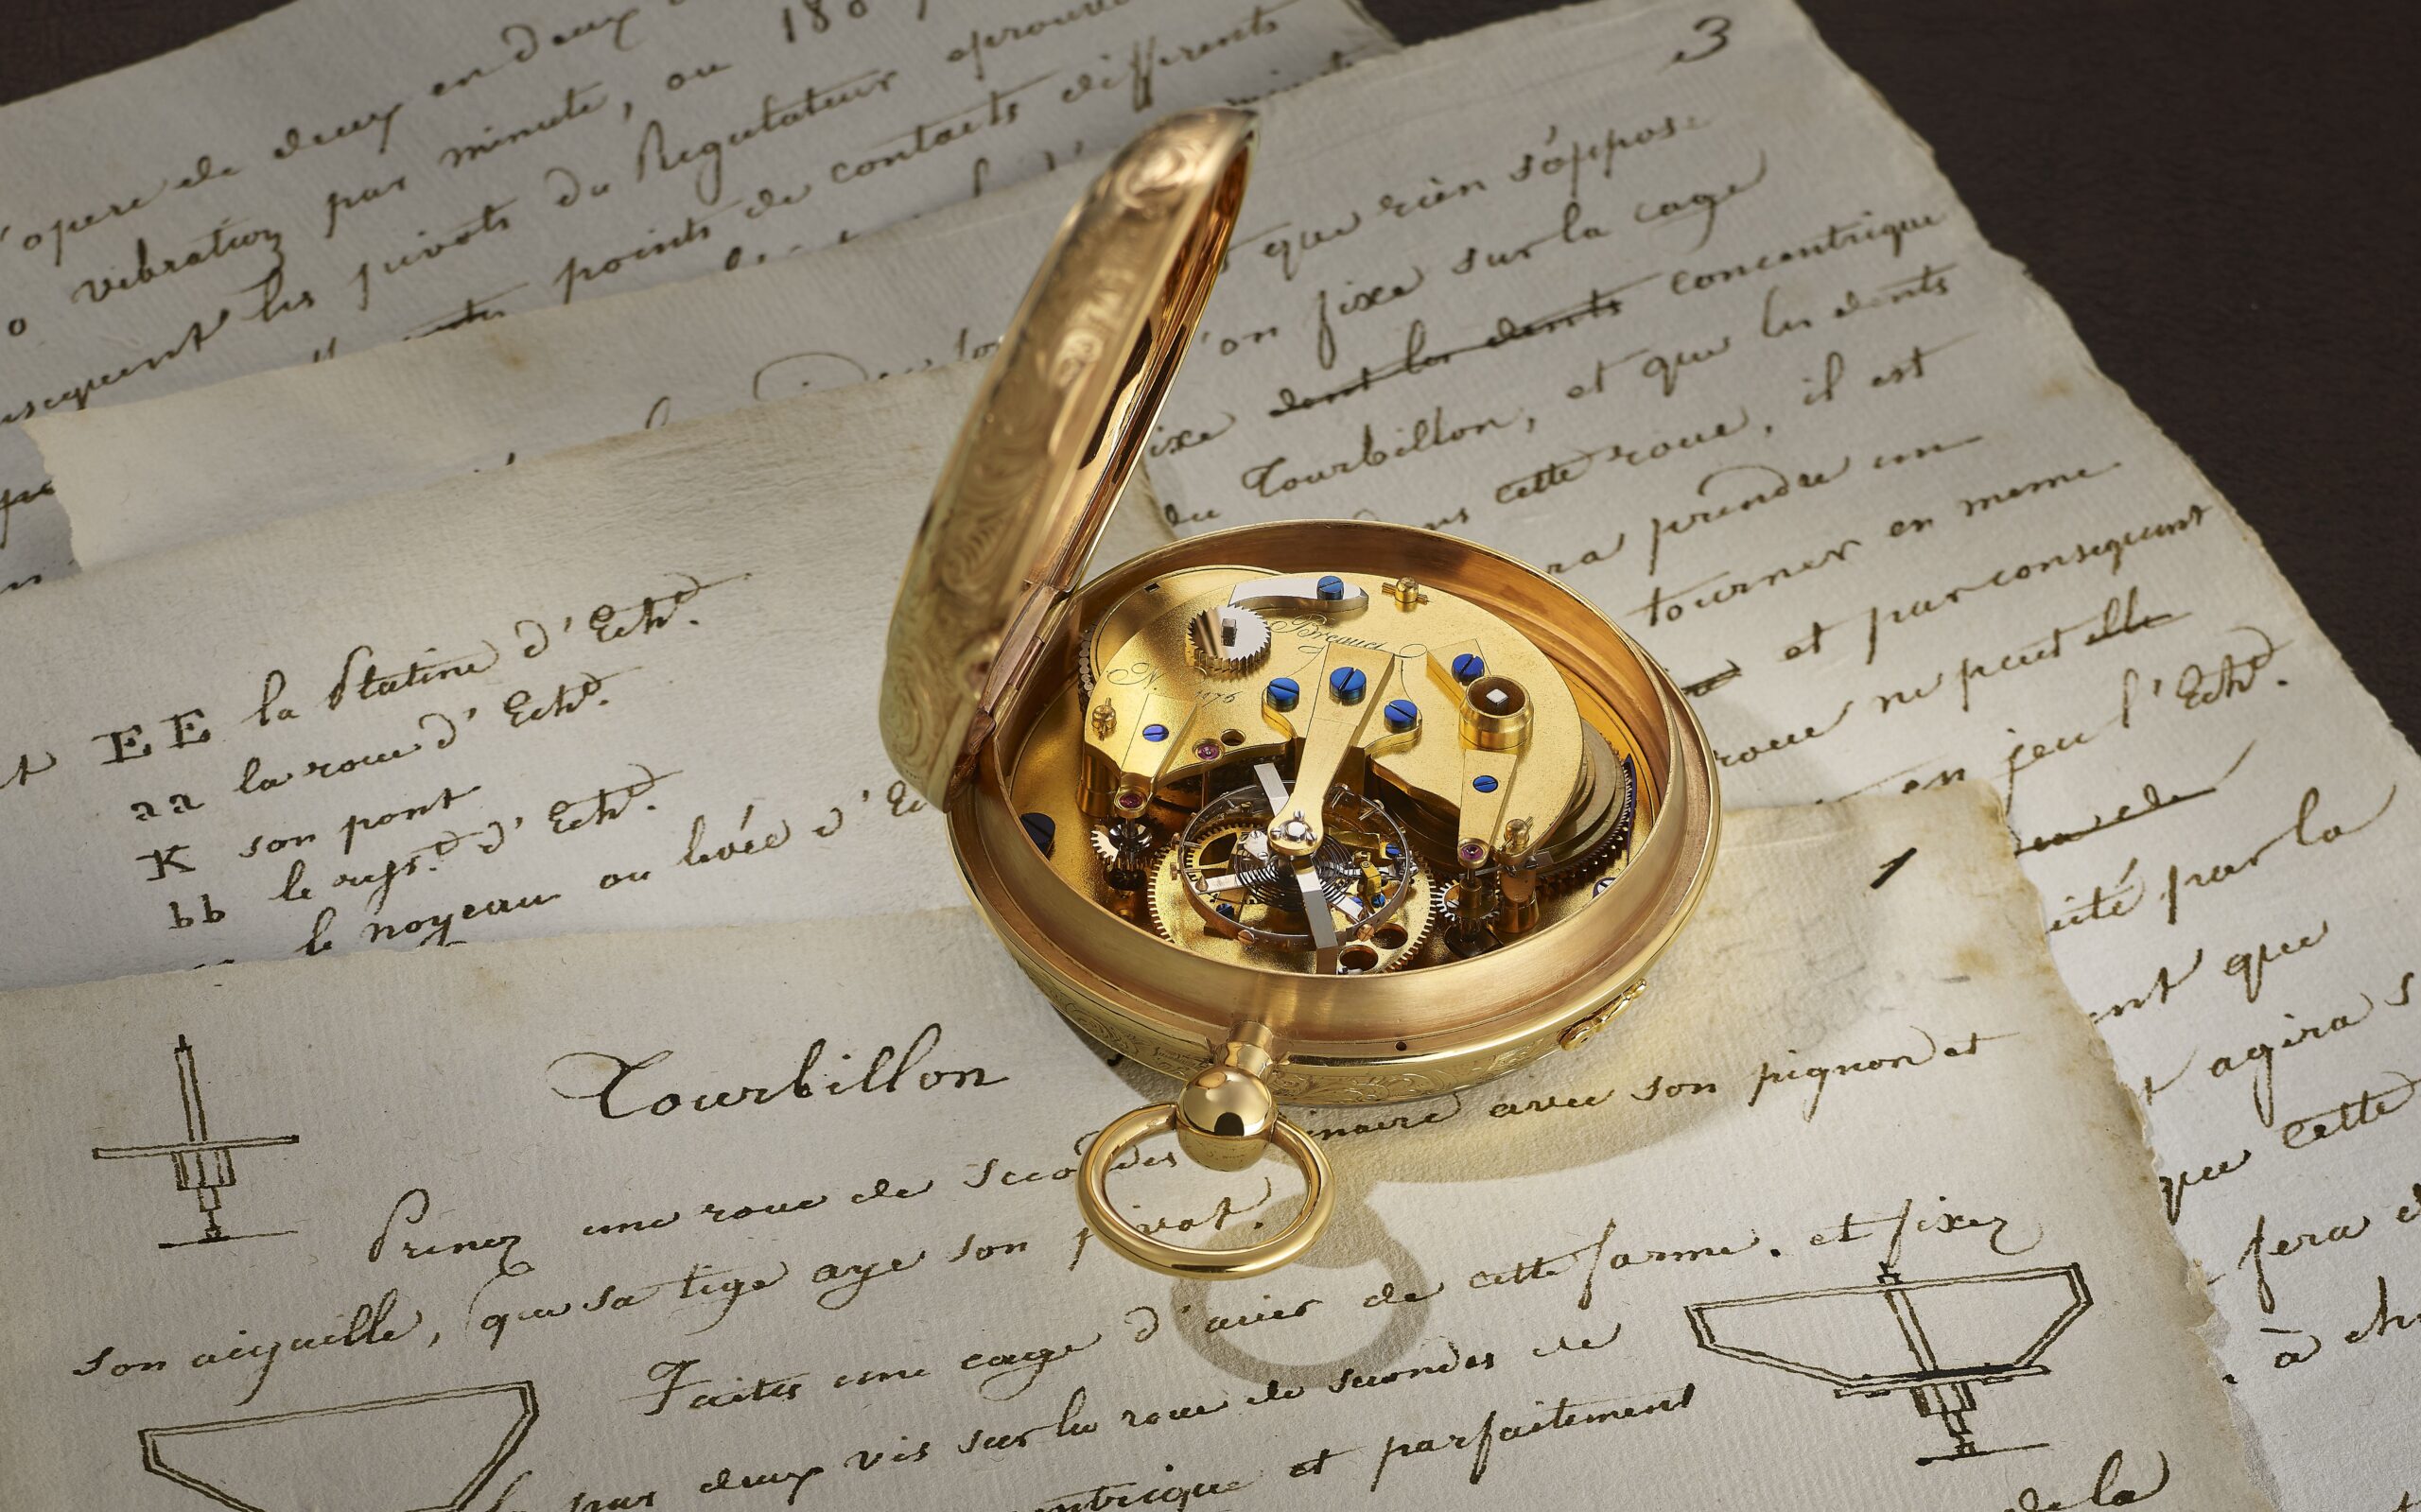 opere de deux en deux
vibration par minute, ou 180
les pivots du Regulateur eprouve
points de contacts differents
3
que rien s'oppose
on fixe sur la cage
ixe dont les dents concentrique
du Tourbillon, et que les dents
cette roue, il est
ra prendre un
tourner en meme
et par consequent
roue ne peut elle
en jeu l'Echt.
par la
ent que
agira
que cette
fera
à
EE la Platine d'Echt.
aa la roue d'Echt.
K son pont
bb le d'Echt.
le noyeau ou levée d'Ec
Breguet
N. 1176
1
Tourbillon
Prenez une roue de secondes inaire avec son pignon et
son aiguille, que sa tige aye son pivot.
Faites une cage d'acier de cette forme. et fixez
par deux vis sur la roue de secondes de
entrique et parfaitement
de la